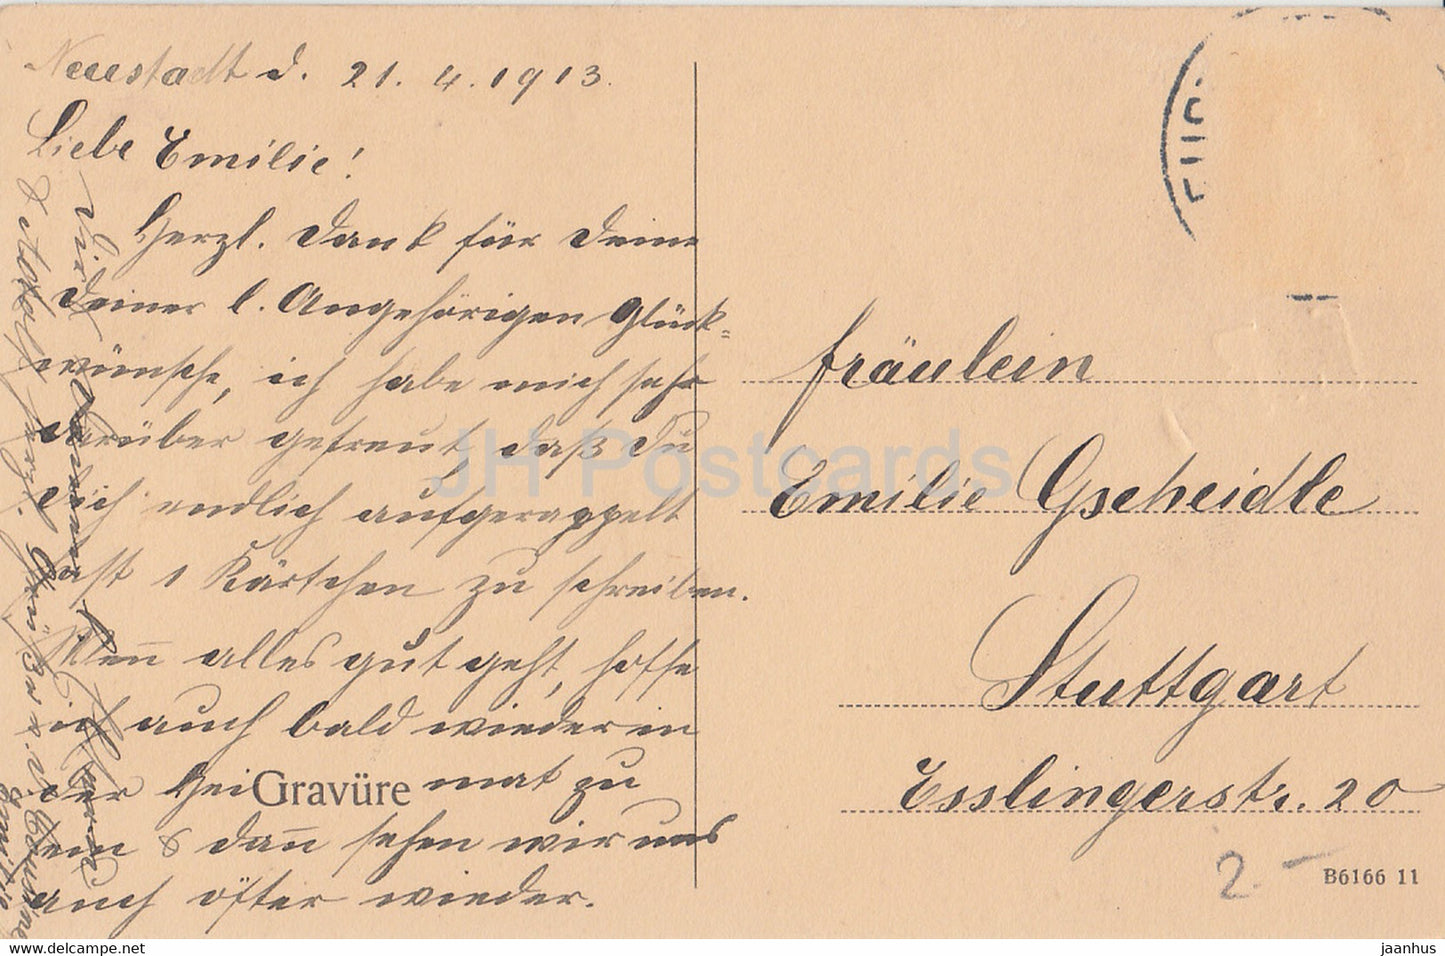 Neustadt d. 21. 4. 1913.
Liebe Emilie!
Herzl. Dank für Deine
Deiner l. Angehörigen Glück=
wünsche, ich habe mich sehr
darüber gefreut, daß Du
Dich endlich aufgerappelt
hast 1 Kärtchen zu schreiben.
Wenn alles gut geht, hoffe
ich auch bald wieder in
der Heimat zu
sein & dann sehen wir uns
auch öfter wieder.
herzl. Grüße v.
Gravüre
Fräulein
Emilie Gscheidle
Stuttgart
Esslingerstr. 20
2.-
B6166 11
JH Postcards
https://www.ebay.com/str/jhpostcards
jaanhus